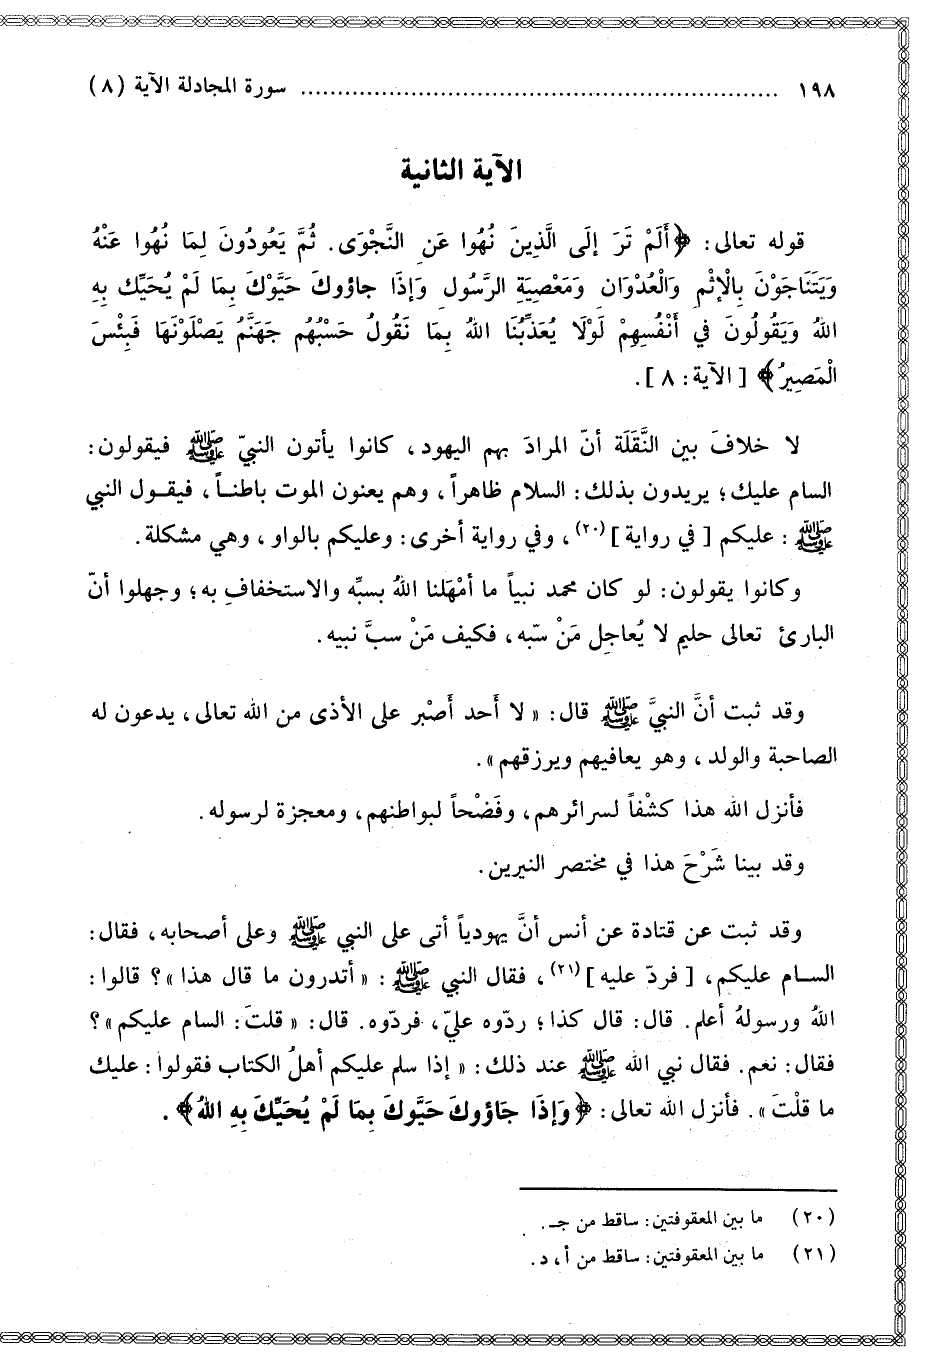 ١٩٨ ........................................ سورة المجادلة الآية (٨)
الآية الثانية
قوله تعالى: ﴿أَلَمْ تَرَ إِلَى الَّذِينَ نُهُوا عَنِ النَّجْوَى. ثُمَّ يَعُودُونَ لِمَا نُهُوا عَنْهُ
وَيَتَنَاجَوْنَ بِالْإِثْمِ وَالْعُدْوَانِ وَمَعْصِيَةِ الرَّسُولِ وَإِذَا جاؤوكَ حَيَّوْكَ بِمَا لَمْ يُحَيِّك بِهِ
اللهُ وَيَقُولُونَ فِي أَنْفُسِهِمْ لَوْلَا يُعَذِّبُنَا اللهُ بِمَا نَقُولُ حَسْبُهُم جَهَنَّمُ يَصْلَوْنَهَا فَبِئْسَ
الْمَصِيرُ﴾ [الآية: ٨].
لا خلافَ بين النَّقَلَة أنّ المرادَ بهم اليهود، كانوا يأتون النبيّ ﷺ فيقولون:
السام عليك؛ يريدون بذلك: السلام ظاهراً، وهم يعنون الموت باطنـاً، فيقـول النبي
ﷺ: عليكم [في رواية](٢٠)، وفي رواية أخرى: وعليكم بالواو، وهي مشكلة.
وكانوا يقولون: لو كان محمد نبياً ما أمْهَلنا اللهُ بسبِّه والاستخفافِ به؛ وجهلوا أنّ
البارئ تعالى حليم لا يُعاجِل مَنْ سّبه، فكيف مَنْ سبَّ نبيه.
وقد ثبت أنَّ النبيَّ ﷺ قال: «لا أحد أَصْبر على الأذى من الله تعالى، يدعون له
الصاحبة والولد، وهو يعافيهم ويرزقهم».
فأنزل الله هذا كشْفاً لسرائرهم، وفَضْحاً لبواطنهم، ومعجزة لرسوله.
وقد بينا شَرْحَ هذا في مختصر النيرين.
وقد ثبت عن قتادة عن أنس أنَّ يهودياً أتى على النبي ﷺ وعلى أصحابه، فقال:
السـام عليكم، [فردّ عليه](٢١)، فقال النبي ﷺ: «أتدرون ما قال هذا»؟ قالوا:
اللهُ ورسولهُ أعلم. قال: قال كذا؛ ردّوه عليّ، فردّوه. قال: «قلتَ: السام عليكم»؟
فقال: نعم. فقال نبي الله ﷺ عند ذلك: «إذا سلم عليكم أهلُ الكتاب فقولوا: عليك
ما قلْتَ». فأنزل الله تعالى: ﴿وَإِذَا جَاؤوكَ حَيَّوكَ بِمَا لَمْ يُحَيِّكَ بِهِ اللهُ﴾.
(٢٠) ما بين المعقوفتين: ساقط من جـ.
(٢١) ما بين المعقوفتين: ساقط من أ، د.